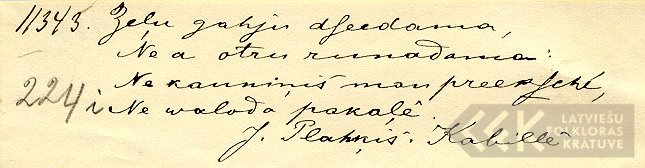 11343. Zeļu gahju dseedama,
Ne a otru runadama:
Ne kauniņis man preekschê,
224i Ne waloda pakaļê.
J. Plahķis. Kabillê
LATVIEŠU
FOLKLORAS
KRĀTUVE